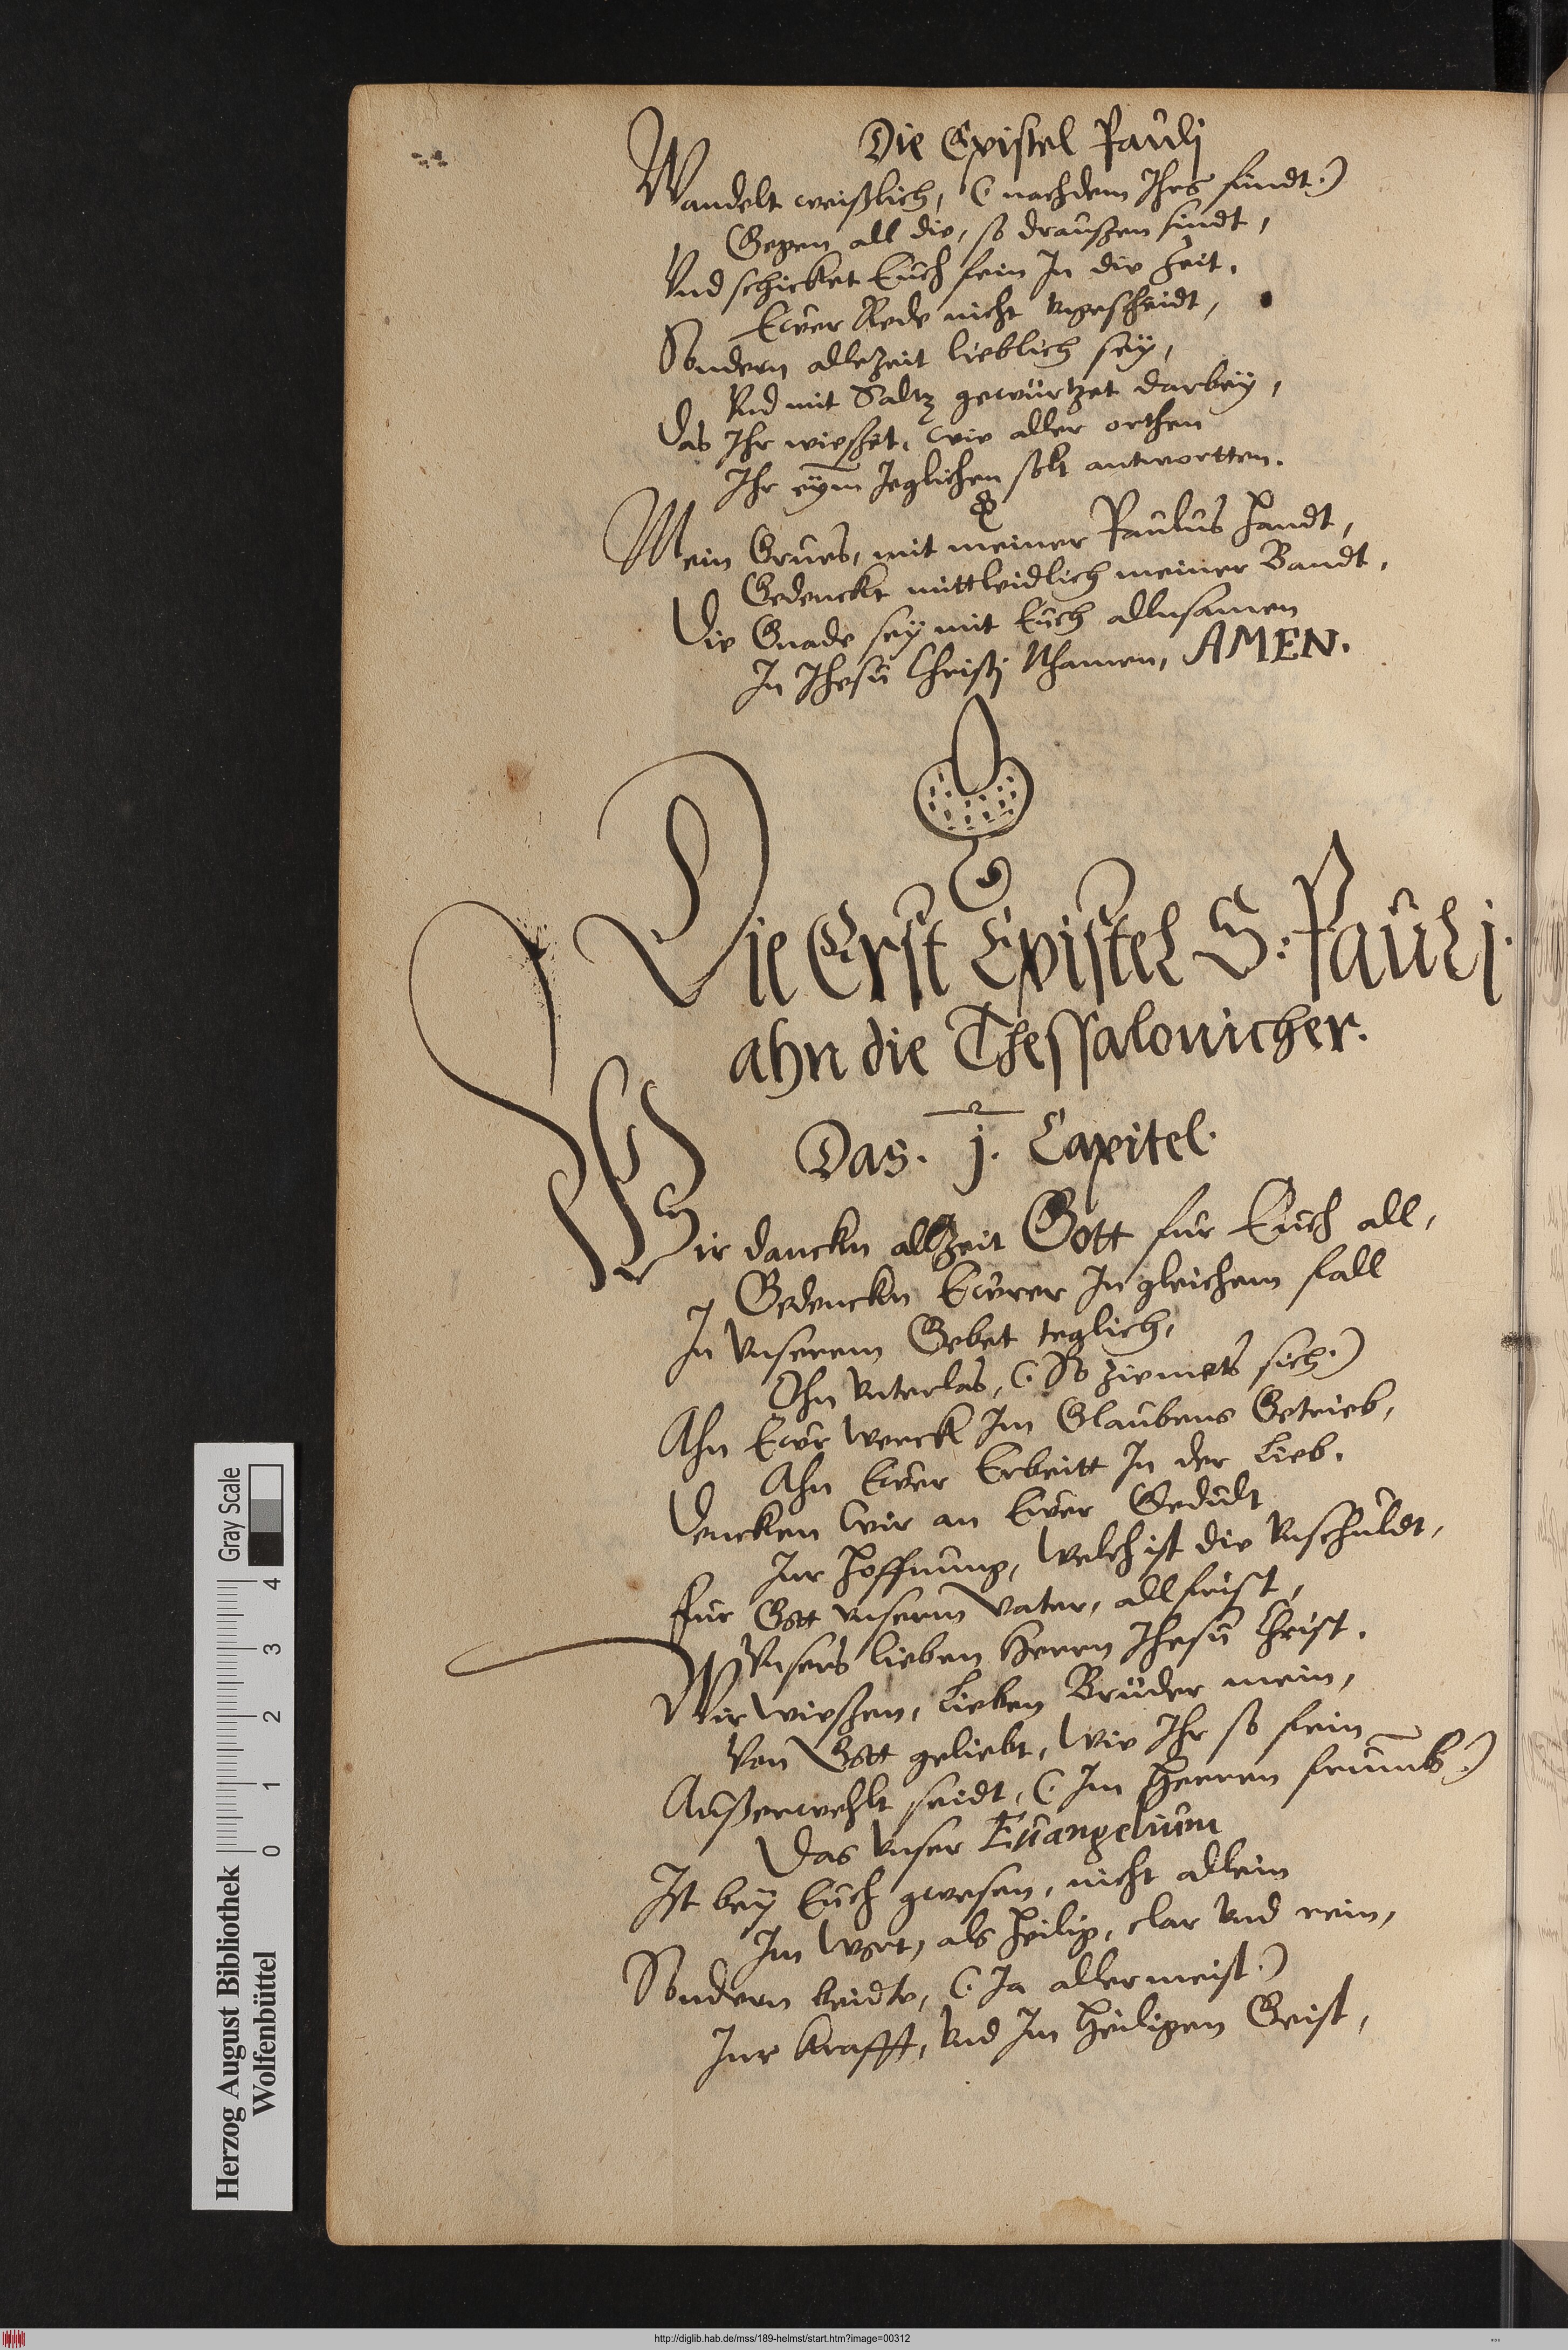 Die Epistel Paulj
Wandelt weißlich, (: nachdem Ihrs findt :)
Gegen all die, so draußen sindt,
Vnd schicket Euch fein In die Zeit.
Ewer Rede nicht vngescheidt,
Sondern allezeit lieblich seÿ,
Vnd mit Saltz gewürtzet darbeÿ,
Das Ihr wießet, wie aller orthen
Ihr eÿm Jeglichen solt antwortten.
Mein Grues, mit meiner Paulus Handt,
Gedenckt mittleidlich meiner Bandt,
Die Gnade seÿ mit Euch allnsamen
In Ihesu Christj Nhamen, AMEN.
Die Erst Epistel S: Paulj.
ahn die Thessalonicher.
Das. j. Capitel.
Wir danckn allzeit Gott für Euch all,
Gedenckn Ewrer In gleichem fall
In vnserem Gebet teglich,
Ohn vnterlas, (: So ziemets sich :)
Ahn Ewr werck Im Glaubens Getrieb,
Ahn Ewer Erbeitt In der Lieb.
Dencken wir an Ewer Gedult
Inr Hoffnung, welch ist die vnschuldt,
Für Gott vnserm Vater, all frist,
Vnsers lieben Herrn Ihesu Christ.
Wir wießen, Lieben Brüder mein,
Von Gott geliebt, wie Ihr so fein
Außerwehlt seidt, (: Im Herren frumb :)
Das vnser Euangelium
Ist beÿ Euch gwesen, nicht allein
Im Wort, als heilig, clar vnd rein,
Sondern beidte, (: Ja allermeist :)
Inr krafft, vnd Im Heiligen Geist,
Herzog August Bibliothek
Wolfenbüttel
0 1 2 3 4
Gray Scale
http://diglib.hab.de/mss/189-helmst/start.htm?image=00312